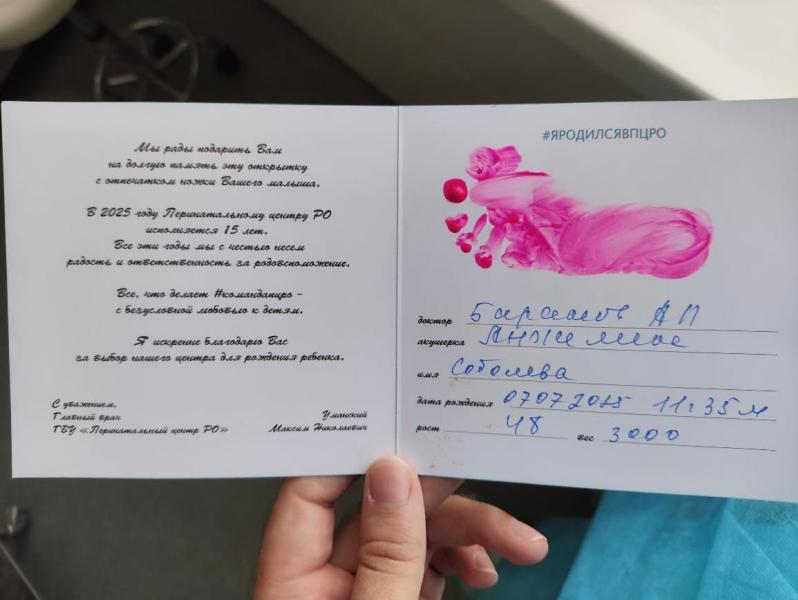 Мы рады подарить Вам
на долгую память эту открытку
с отпечатком ножки Вашего малыша.
В 2025 году Перинатальному центру РО
исполняется 15 лет.
Все эти годы мы с честью несем
радость и ответственность за родовспоможение.
Все, что делает #командапцро -
с безусловной любовью к детям.
Я искренне благодарю Вас
за выбор нашего центра для рождения ребенка.
С уважением,
Главный врач
ГБУ «Перинатальный центр РО»
Уманский
Максим Николаевич
#ЯРОДИЛСЯВПЦРО
доктор АП
акушерка
имя Соболева
дата рождения 07072025 11:35м
рост 48 вес 3000